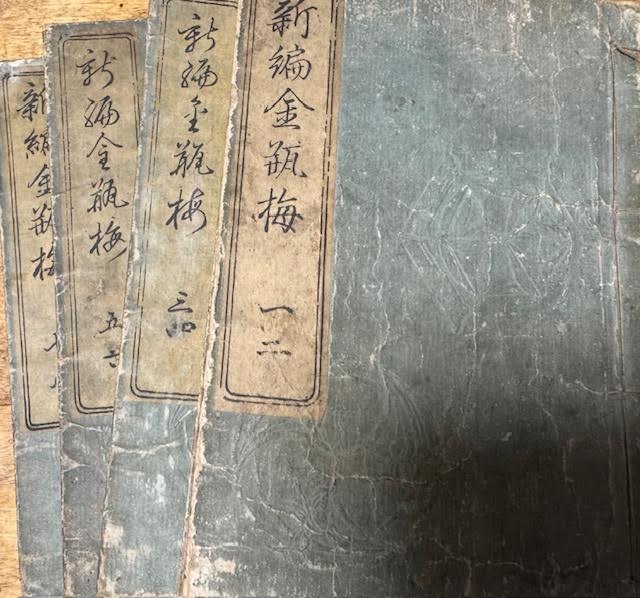 新編金瓶梅
一二
新編金瓶梅
三四
新編金瓶梅
五六
新編金瓶梅
七